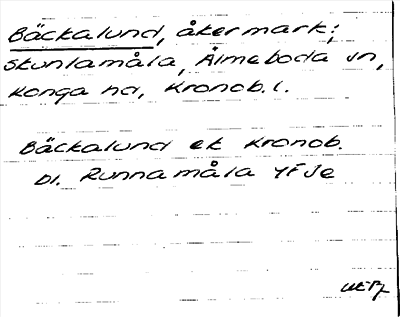 Bäckalund, åkermark;
Skunlamåla, Älmeboda sn,
Konga hd, Kronob. l.
Bäckalund ek Kronob.
bl. Runnamåla 4F Je